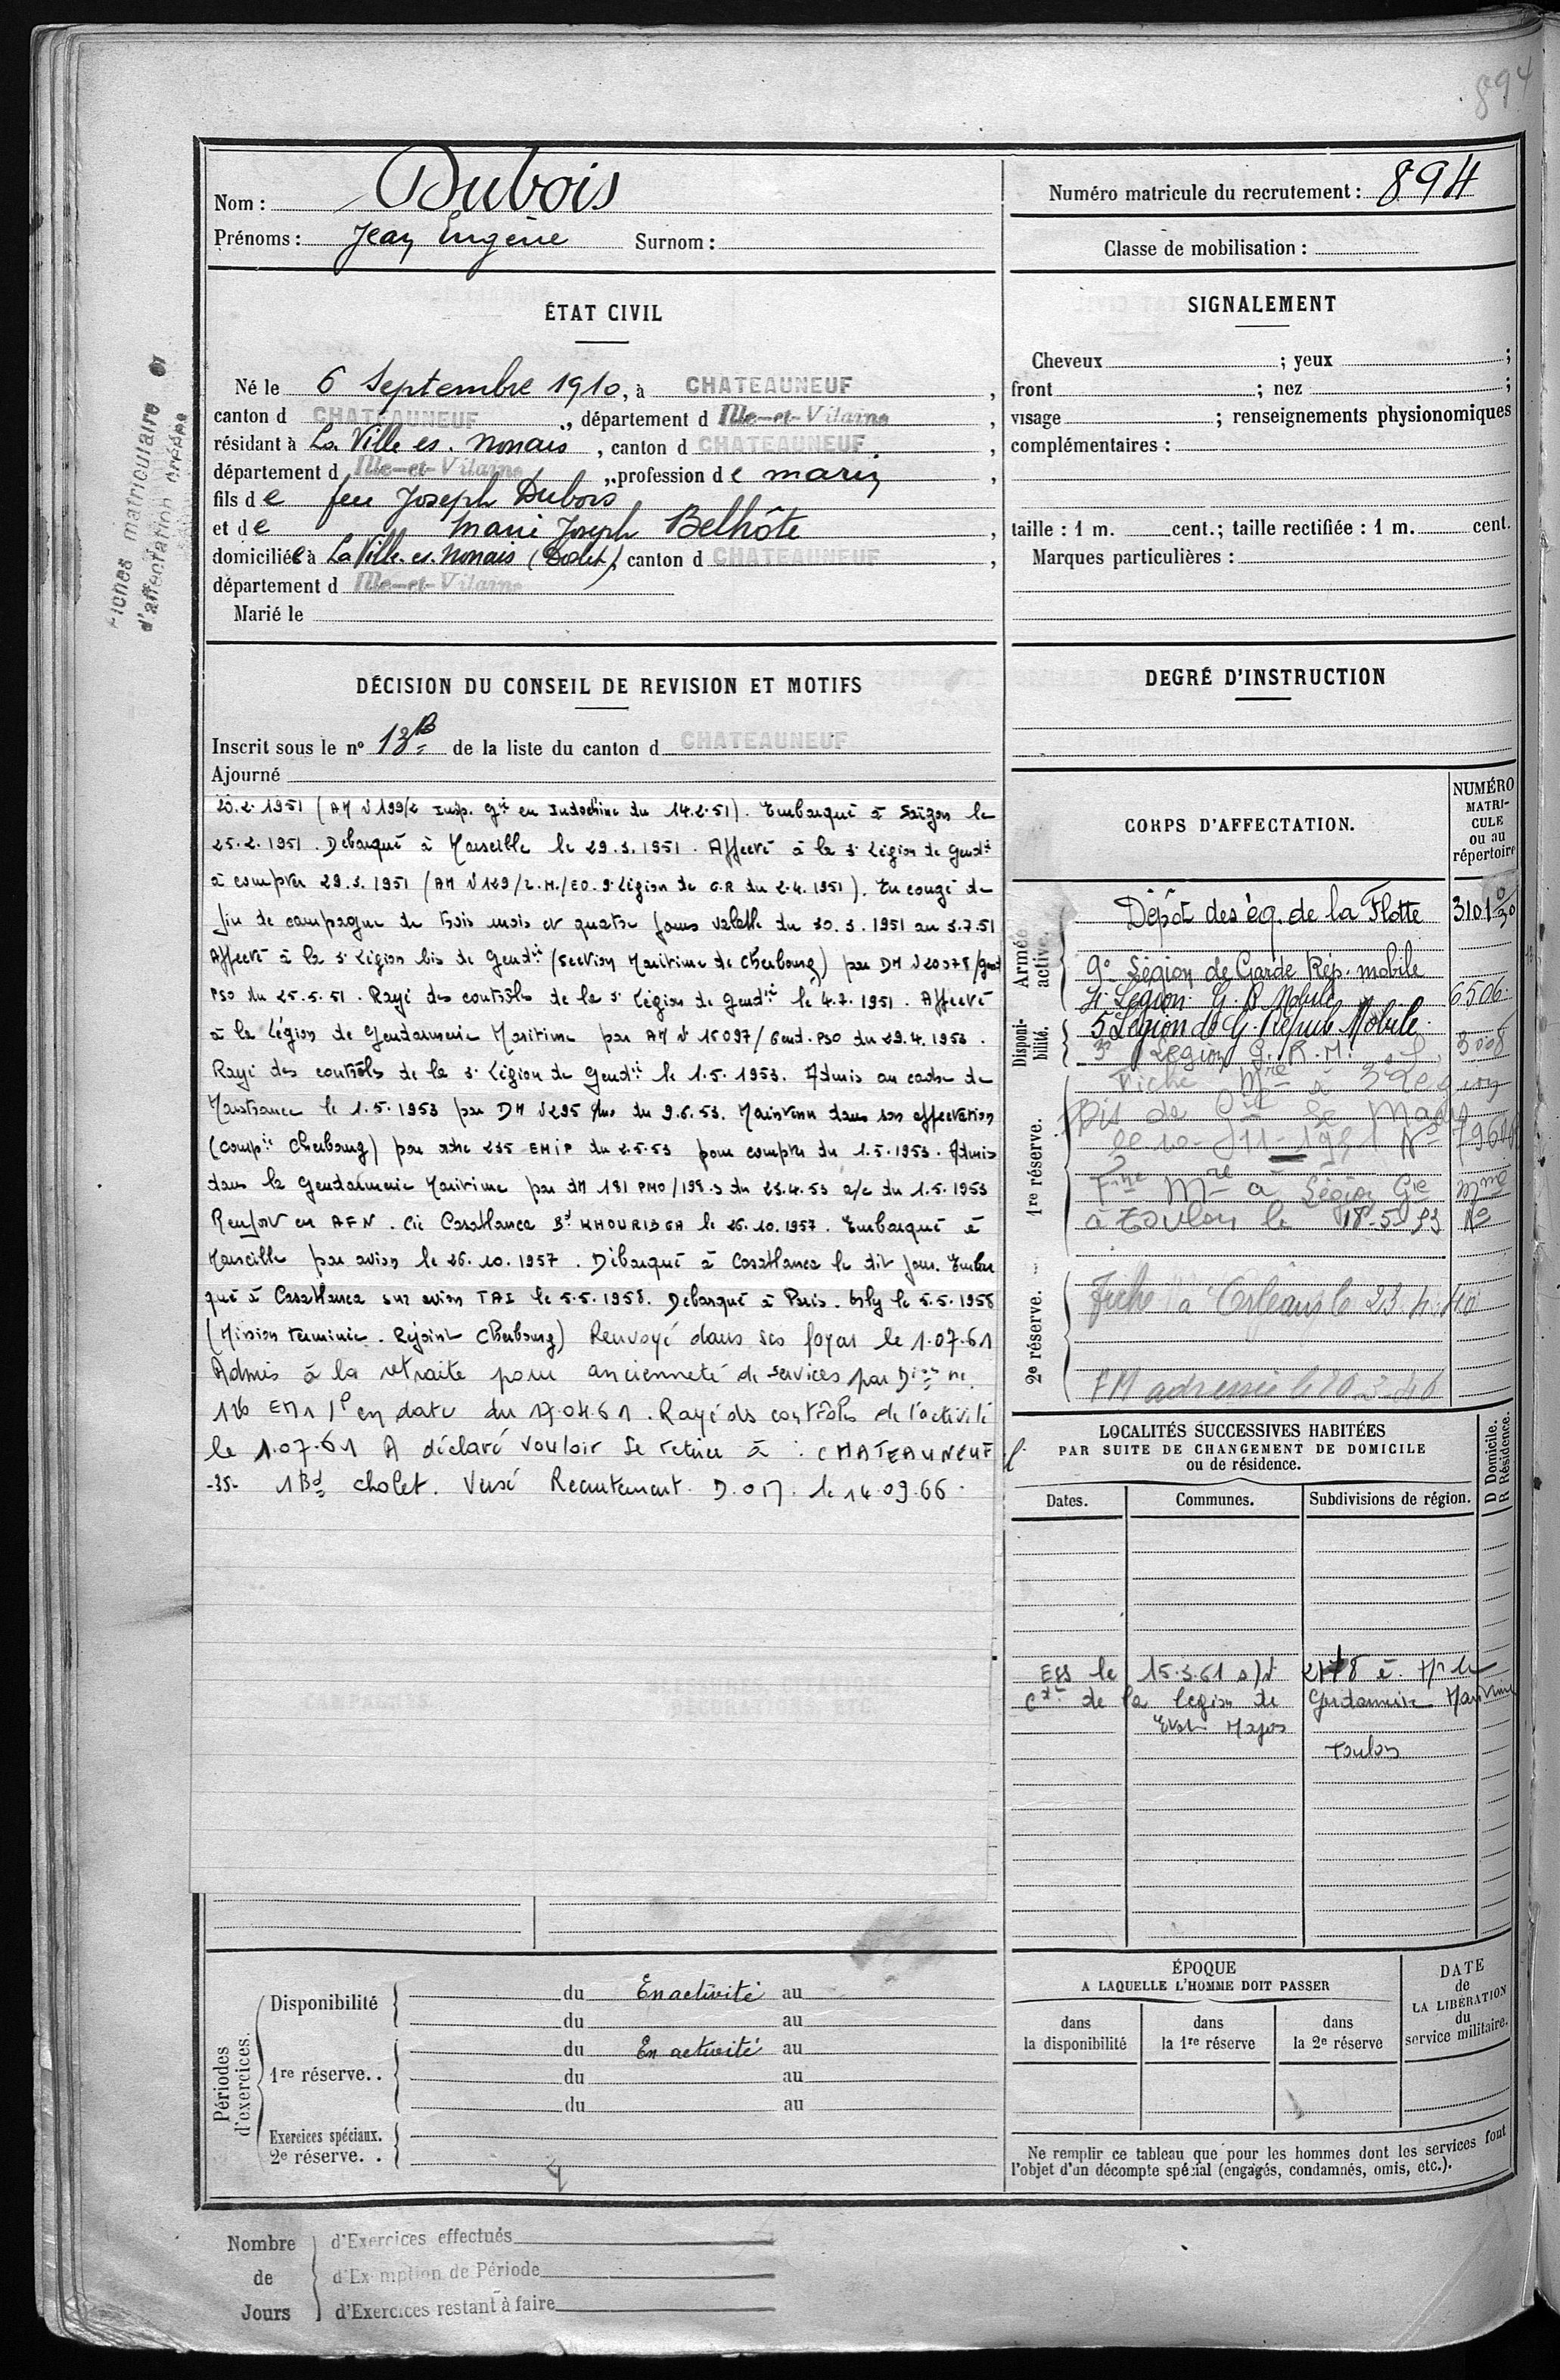 894
Nom : Dubois
Prénoms : Jean Eugène Surnom :
Numéro matricule du recrutement : 894
Classe de mobilisation :
ÉTAT CIVIL
Né le 6 Septembre 1910, à CHATEAUNEUF,
canton d CHATEAUNEUF, département d Ille-et-Vilaine,
résidant à La Ville es. Nonais, canton d CHATEAUNEUF,
département d Ille-et-Vilaine, profession de marin,
fils de feu Joseph Dubois
et de Marie Joseph Belhôte,
domiciliée à La Ville. es. Nonais (Doslet), canton d CHATEAUNEUF,
département d Ille-et-Vilaine
Marié le
matriculaire et
d'affectation
SIGNALEMENT
Cheveux ; yeux ;
front ; nez ;
visage ; renseignements physionomiques
complémentaires :
taille : 1 m. cent.; taille rectifiée : 1 m. cent.
Marques particulières :
DÉCISION DU CONSEIL DE REVISION ET MOTIFS
Inscrit sous le n° 13 B de la liste du canton d CHATEAUNEUF
Ajourné
20.2.1951 (AM N 199/2 Insp. Gie en Indochine du 14.2.51). Embarqué à Saïgon le
25.2.1951. Débarqué à Marseille le 29.3.1951. Affecté à la 3e Légion de Gendie
à compter 29.3.1951 (AM N 129/2.M./EO. 9e Légion de G.R du 2.4.1951). En congé de
fin de campagne de trois mois et quatre jours valable du 30.3.1951 au 3.7.51
Affecté à la 3e Légion bis de Gendie (Section Maritime de Cherbourg) par DM N 20378/Gend
PSO du 25.5.51. Rayé des contrôles de la 3e Légion de Gendie le 4.7.1951. Affecté
à la Légion de Gendarmerie Maritime par AM N 15097/Gend. PSO du 29.4.1953.
Rayé des contrôles de la 3e Légion de Gendie le 1.5.1953. Admis au cadre de
Maistrance le 1.5.1953 par DM N 295 du 9.6.53. Maintenu dans son affectation
(Compie Cherbourg) par ordre 235 EMIP du 2.5.53 pour compter du 1.5.1953. Admis
dans la Gendarmerie Maritime par DM 181 PMO/198.3 du 23.4.53 a/c du 1.5.1953
Renfort en AFN. Cie Casablanca Bd KHOURIBGA le 26.10.1957. Embarqué à
Marseille par avion le 26.10.1957. Débarqué à Casablanca le dit jour. Embar
qué à Casablanca sur avion TAI le 5.5.1958. Débarqué à Paris. Orly le 5.5.1958
(Mission terminée. Rejoint Cherbourg) Renvoyé dans ses foyers le 1.07.61
Admis à la retraite pour ancienneté de services par Dion m.
126 EM1 P en date du 17.04.61. Rayé des contrôles de l'activité
le 1.07.61 A déclaré vouloir se retirer à : CHATEAUNEUF
-35- 1 Bd cholet. Versé Recrutement. D.O.M. le 14.09.66.
DEGRÉ D'INSTRUCTION
CORPS D'AFFECTATION.
NUMÉRO MATRI-CULE ou au répertoire
Armée active.
Dépôt des éq. de la Flotte 3101
9e Légion de Garde Rép. mobile
4e Légion G. R Mobile 6506
Disponi-bilité.
5 Légion de G. Répub Mobile
3e Légion G. R. M. 3008
1re réserve.
Fiche Mle à 3e Légion
Bis de Gie
Fiche Mle à Légion Gie Mme
à Toulon le 18-5-53 No
2e réserve.
Fiche à Orléans le 23.4.40
FM adressée le 20-3-46
LOCALITÉS SUCCESSIVES HABITÉES
PAR SUITE DE CHANGEMENT DE DOMICILE
ou de résidence.
Dates. Communes. Subdivisions de région. D Domicile. R Résidence.
EGS le 15.3.61 s/N
Ct de la Légion de Gendarmerie Maritime
Etat Major
Toulon
Périodes d'exercices.
Disponibilité du En activité au
du au
1re réserve.. du En activité au
du au
du au
Exercices spéciaux.
2e réserve. .
ÉPOQUE
A LAQUELLE L'HOMME DOIT PASSER
dans la disponibilité
dans la 1re réserve
dans la 2e réserve
DATE de LA LIBÉRATION du service militaire.
Ne remplir ce tableau que pour les hommes dont les services font
l'objet d'un décompte spécial (engagés, condamnés, omis, etc.).
Nombre d'Exercices effectués
de d'Exemption de Période
Jours d'Exercices restant à faire